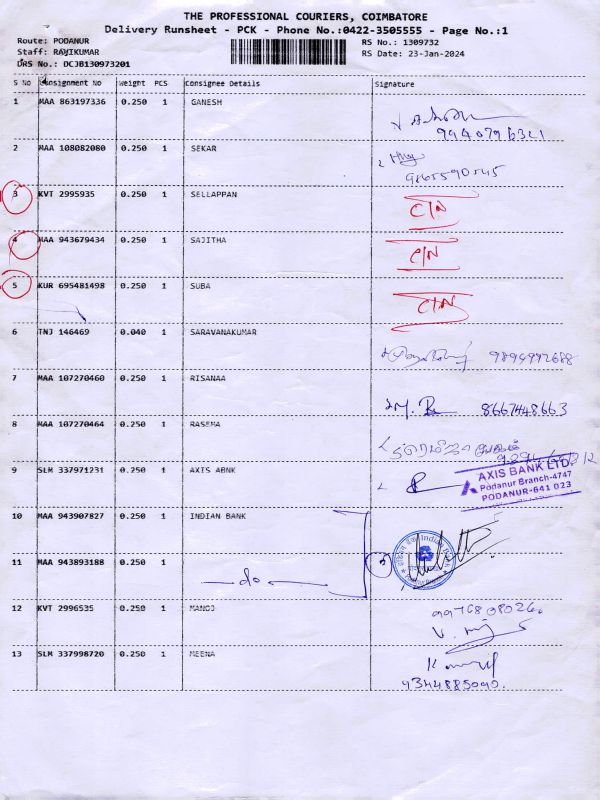 THE PROFESSIONAL COURIERS, COIMBATORE
Delivery Runsheet - PCK - Phone No.:0422-3505555 - Page No.:1
Route: PODANUR
RS No.: 1309732
Staff: RAJIKUMAR
RS Date: 23-Jan-2024
DRS No.: DCJB130973201
S No Consignment No Weight PCS Consignee Details Signature
1 MAA 863197336 0.250 1 GANESH
9940796321
2 MAA 108082080 0.250 1 SEKAR
9865590545
3 KVT 2995935 0.250 1 SELLAPPAN C/N
4 MAA 943679434 0.250 1 SAJITHA C/N
5 KUR 695481498 0.250 1 SUBA C/N
6 TNJ 146469 0.040 1 SARAVANAKUMAR 9894992688
7 MAA 107270460 0.250 1 RISANAA M. 8667448663
8 MAA 107270464 0.250 1 RASEMA
9 SLM 337971231 0.250 1 AXIS ABNK
AXIS BANK LTD.
Podanur Branch-4747
PODANUR-641 023
10 MAA 943907827 0.250 1 INDIAN BANK
Indian Bank
11 MAA 943893188 0.250 1 do
12 KVT 2996535 0.250 1 MANOJ 9976808026.
13 SLM 337998720 0.250 1 MEENA
9344885090.